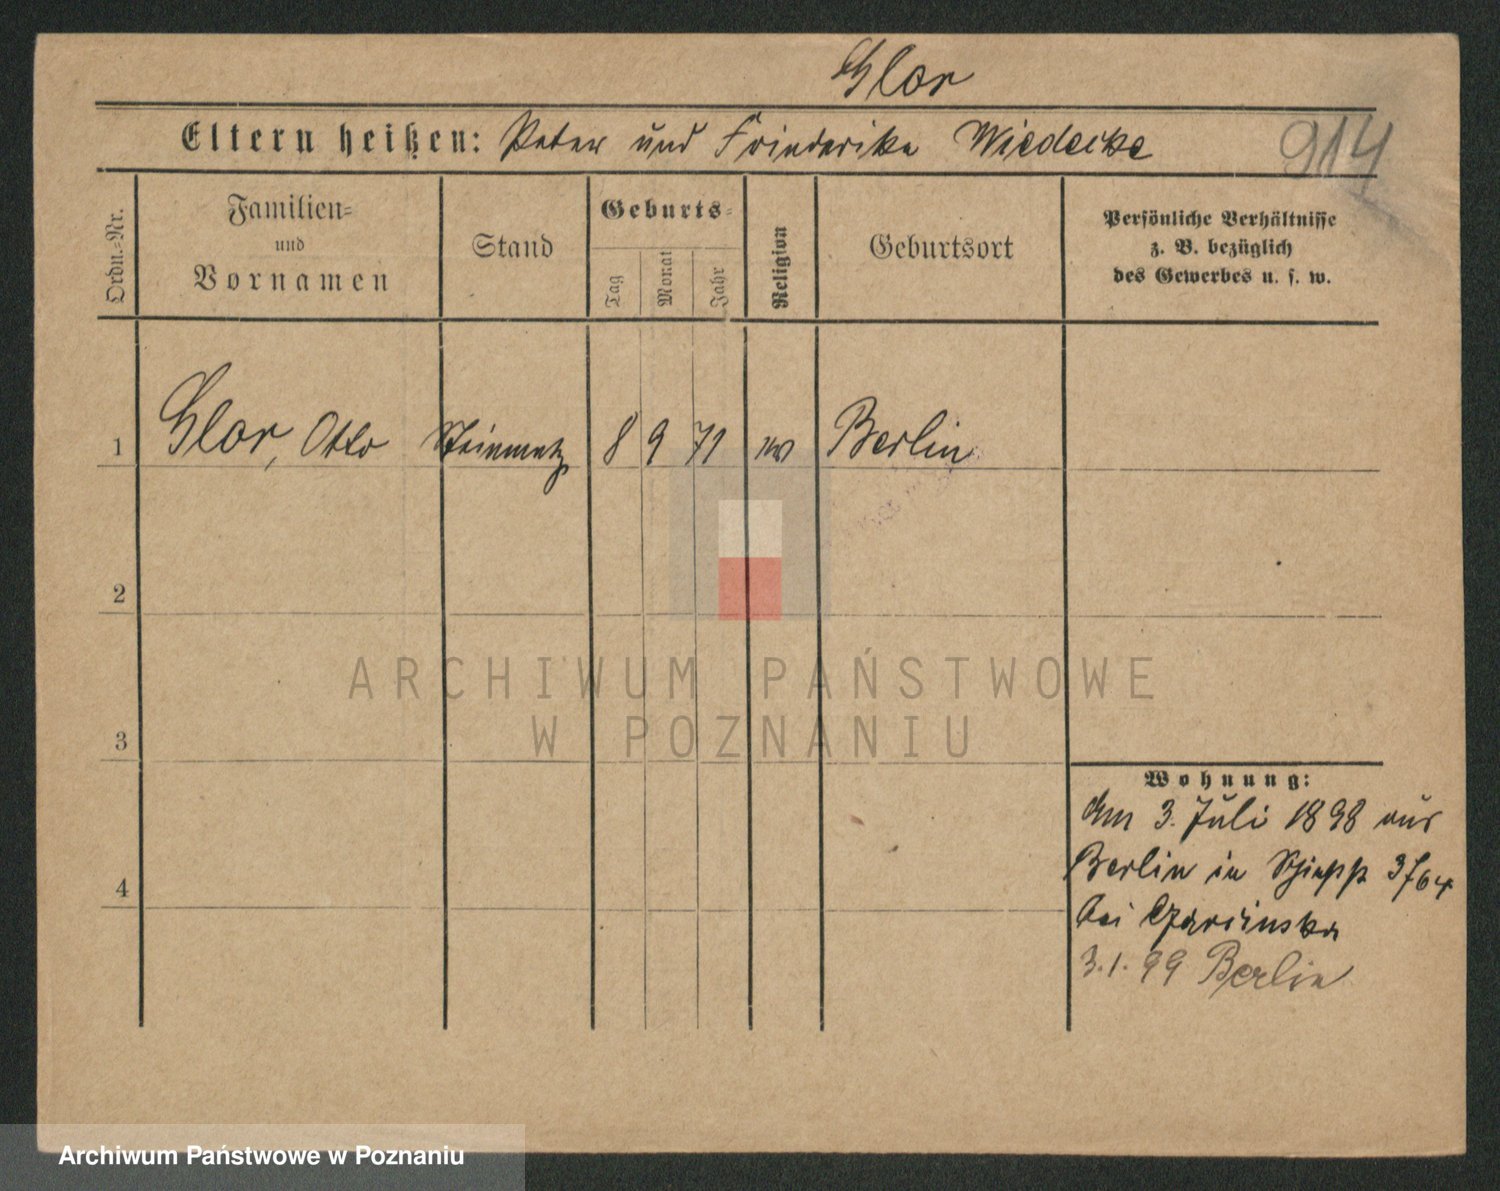 Glor
Eltern heißen: Peter und Friederike Wiedecke
914
Ordn.-Nr.
Familien-
und
Vornamen
Stand
Geburts-
Tag
Monat
Jahr
Religion
Geburtsort
Persönliche Verhältnisse
z. B. bezüglich
des Gewerbes u. s. w.
1 Glor, Otto Steinmetz 8 9 71 ev Berlin
2
3
4
ARCHIWUM PAŃSTWOWE
W POZNANIU
Wohnung:
Am 3. Juli 1898 aus
Berlin in
bei
3.1.99 Berlin
Archiwum Państwowe w Poznaniu